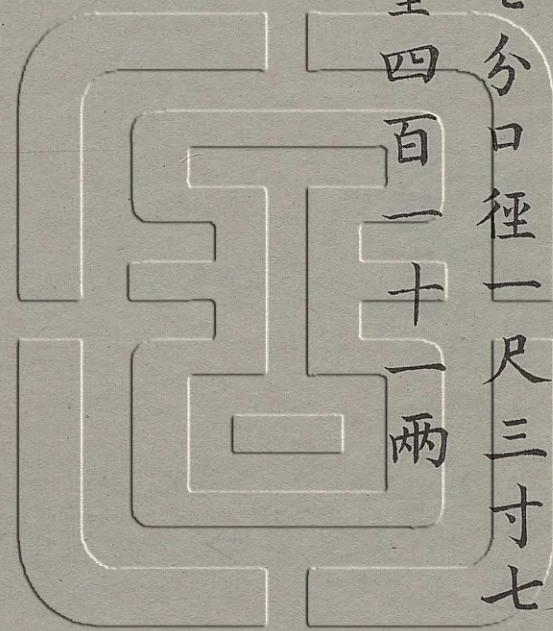 分口徑一尺三寸七
四百一十一兩